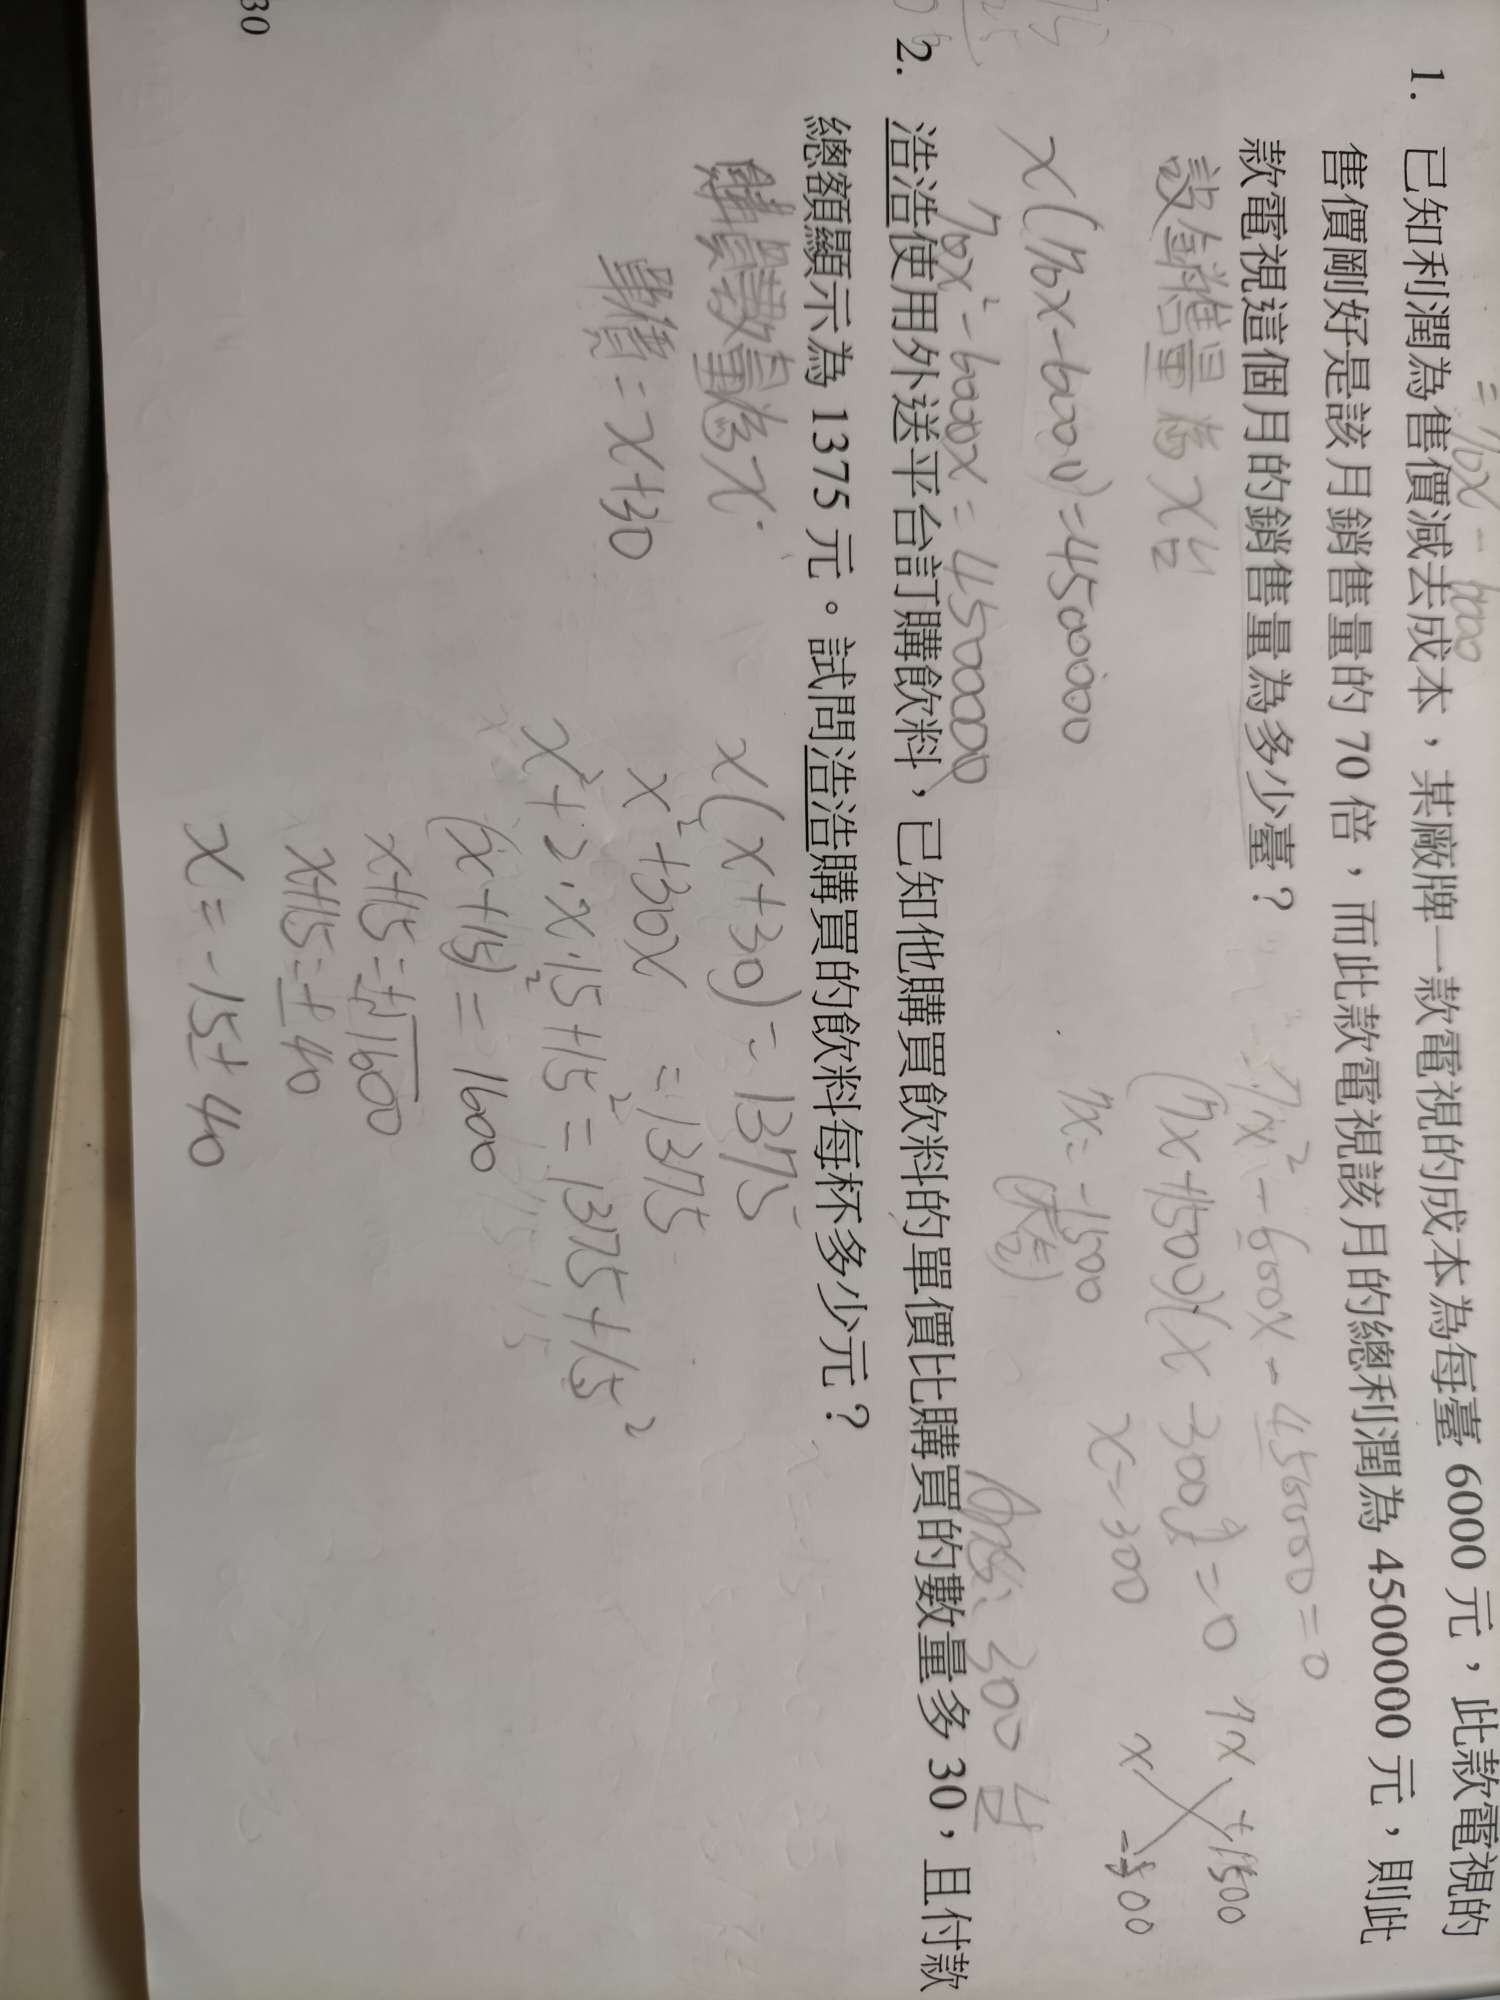 = 70x - 6000
1. 已知利潤為售價減去成本，某廠牌一款電視的成本為每臺 6000 元，此款電視的
售價剛好是該月銷售量的 70 倍，而此款電視該月的總利潤為 4500000 元，則此
款電視這個月的銷售量為多少臺？
設銷售量為x台
x(70x-6000)=4500000
70x²-6000x=4500000
7x²-600x-450000=0
(7x+1500)(x-300)=0
7x +1500
x -300
7x=-1500 x=300
(不合)
300台
2. 浩浩使用外送平台訂購飲料，已知他購買飲料的單價比購買的數量多 30，且付款
總額顯示為 1375 元。試問浩浩購買的飲料每杯多少元？
購買數量為x.
單價=x+30
x(x+30)=1375
x²+30x =1375
x²+2·x·15+15²=1375+15²
(x+15)²=1600
x+15=±√1600
x+15=±40
x=-15±40
30